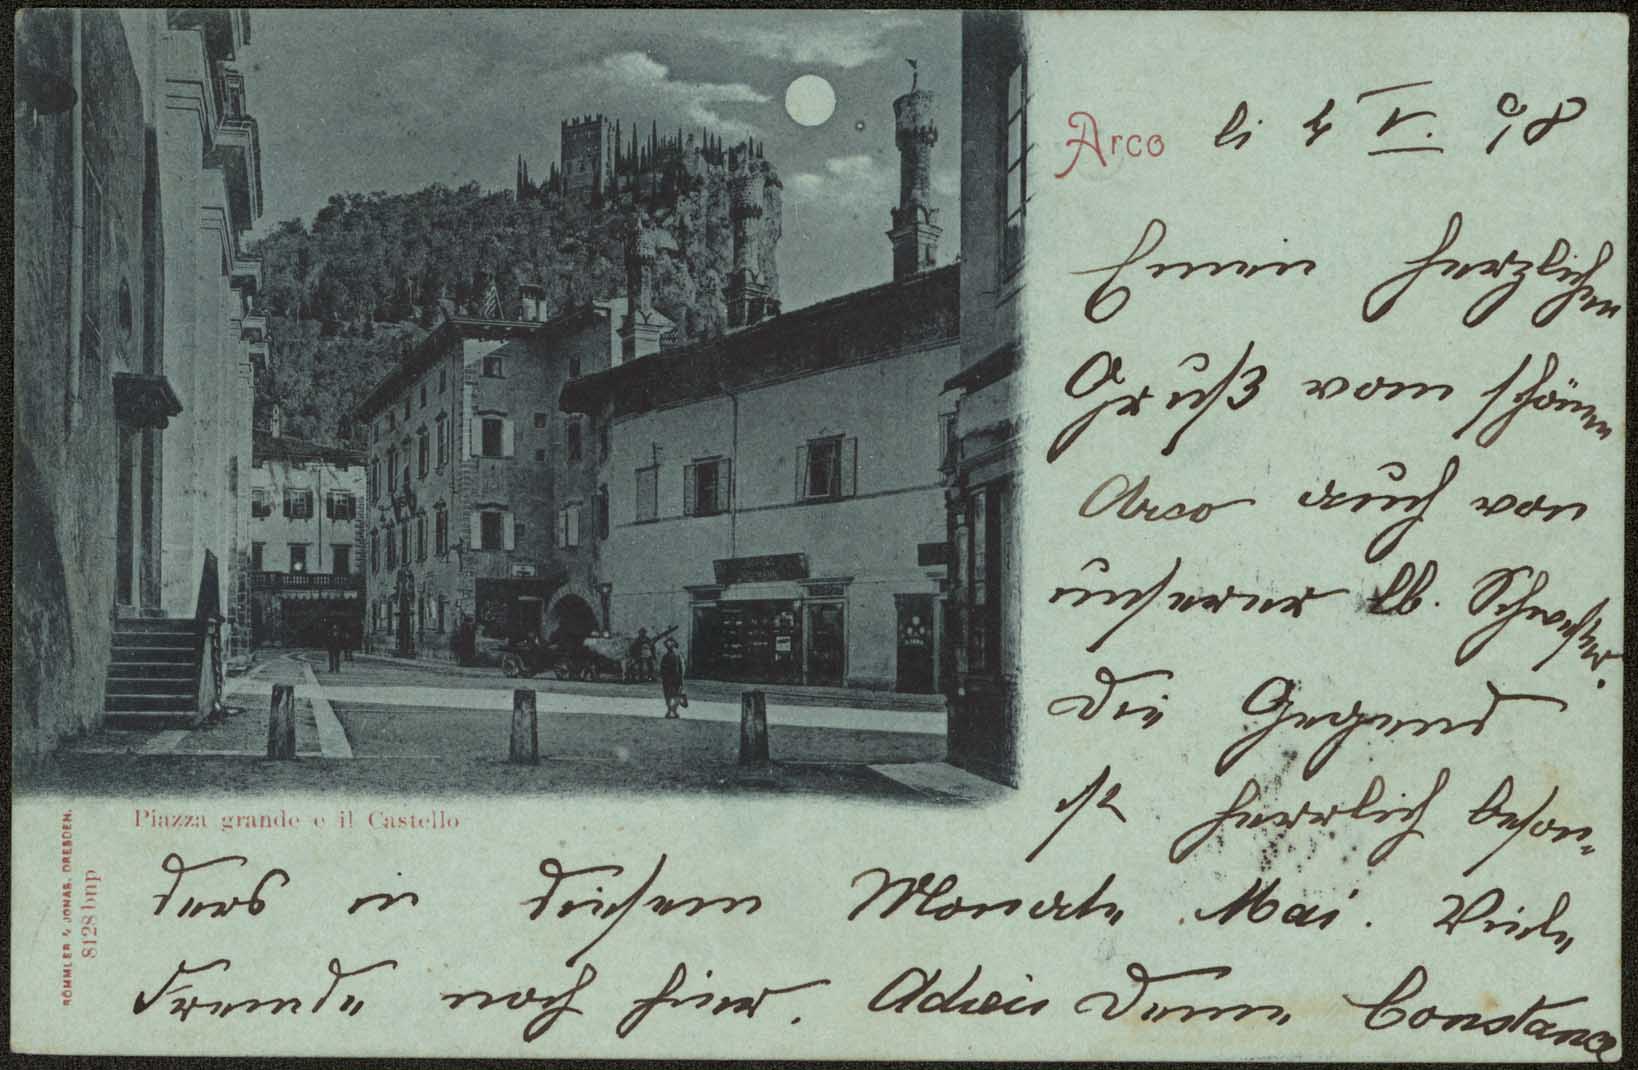 Arco li 4 V. 98
Einen herzlichen
Gruß vom schönen
Arco auch von
unserer lb. Schwester.
Die Gegend
ist herrlich beson-
Piazza grande e il Castello
RÖMMLER & JONAS, DRESDEN.
8128 bnp
ders in diesem Monate Mai. Viele
Fremde noch hier. Deine Constance